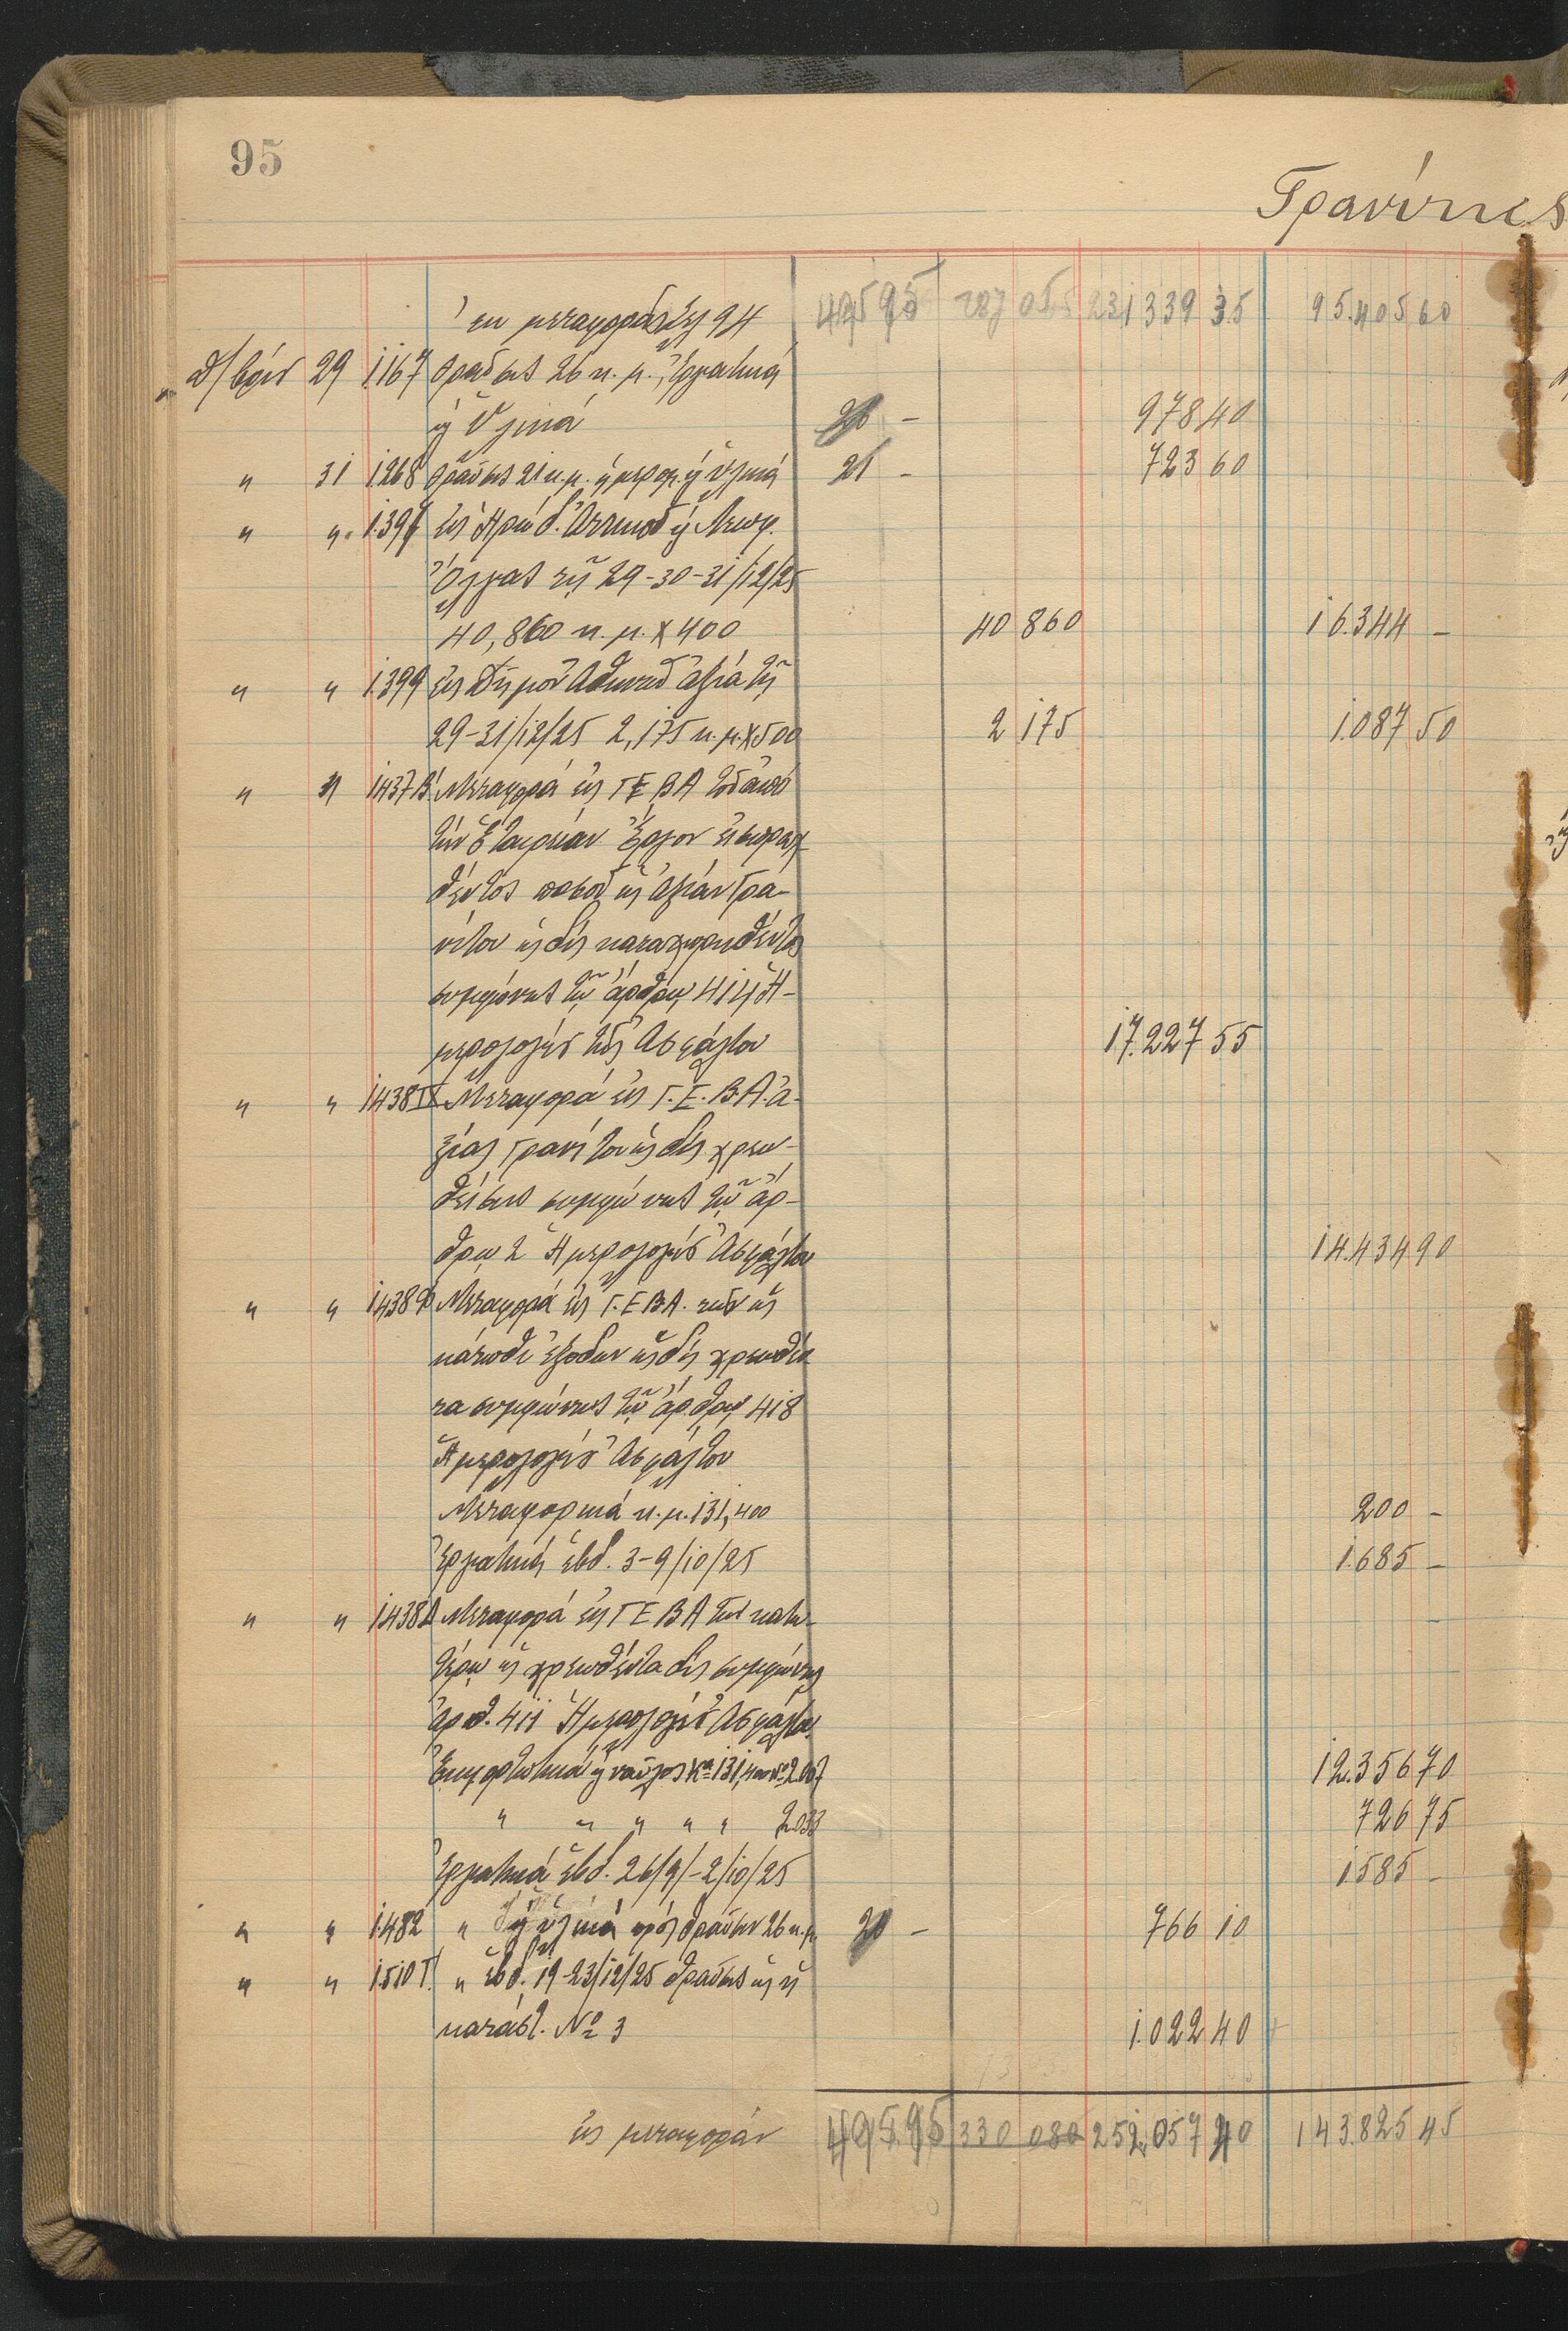 95
Γρανίτης
Ἐκ μεταφορᾶς σελ 94 231 339 35 95.405 60
Δ/βρίου 29 1167 θραύσις 26 κ. μ. Ἐργατικά
ἢ Ὑλικά 26 - 978 40
" 31 1268 θραύσις 21 κ.μ. ἡμερομ. ἢ ὑλικά 21 - 723 60
" " 1.397 εἰς Ἡρώδ. Ἀττικοῦ ἢ Λεωφ.
Ὄλγας τῇ 29-30-31/12/25
40,860 κ. μ. Χ 400 40 860 16.344 -
" " 1.399 εἰς Δῆμον Ἀθηναίων ἀξία τῇ
29-31/12/25 2,175 κ. μ. Χ 500 2 175 1.087 50
" " 1437 Β' Μεταφορὰ εἰς Γ Ε Β Α τοῦ ἀπὸ
τὴν Ἑταιρείαν Ἔργον εἰσπραχ-
θέντος ποσοῦ εἰς ἀξίαν Γρα-
νίτου ὡς δὶς καταχωρηθέντος
συμφώνως τῷ ἄρθρῳ 414 Ἡ-
μερολογίου τῆς Ἀσφάλτου 17.227 55
" " 1438 IX Μεταφορὰ εἰς Γ. Ε. Β. Α. ἀ-
ξίας γρανίτου ὡς δὶς χρεω-
θείσης συμφώνως τῷ ἄρ-
θρῳ 2 Ἡμερολογίου Ἀσφάλτου 14.434 90
" " 1438 Μεταφορὰ εἰς Γ. Ε Β Α. τῶν ὡς
κάτωθι ἐξόδων ὡς δὶς χρεωθέν
τα συμφώνως τῷ ἄρθρῳ 418
Ἡμερολογίου Ἀσφάλτου
Μεταφορικά κ. μ. 131,400 200 -
Ἐργατικά ἑβδ. 3-9/10/25 1.685 -
" " 1438 Δ Μεταφορὰ εἰς Γ Ε Β Α τῶν κατω-
τέρω ὡς χρεωθέντα δὶς συμφώνως
ἄρθ. 411 Ἡμερολογίου Ἀσφάλτου
Ἐκφορτωτικά ἢ ναῦλος 131,400 Νο 2.007 12.356 70
" " " " " 2033 726 75
Ἐργατικά ἑβδ. 26/9/-2/10/25 1585 -
" " 1.482 " ἢ ὑλικά πρὸς θραῦσιν 26 κ. μ. 20 - 766 10
" " 1.510 Γ. " ἑβδ. 19-23/12/25 θραύσις ὡς ἡ
κατάστ. Νο 3 1.022 40
εἰς μεταφοράν 330 080 252.057 40 143.825 45